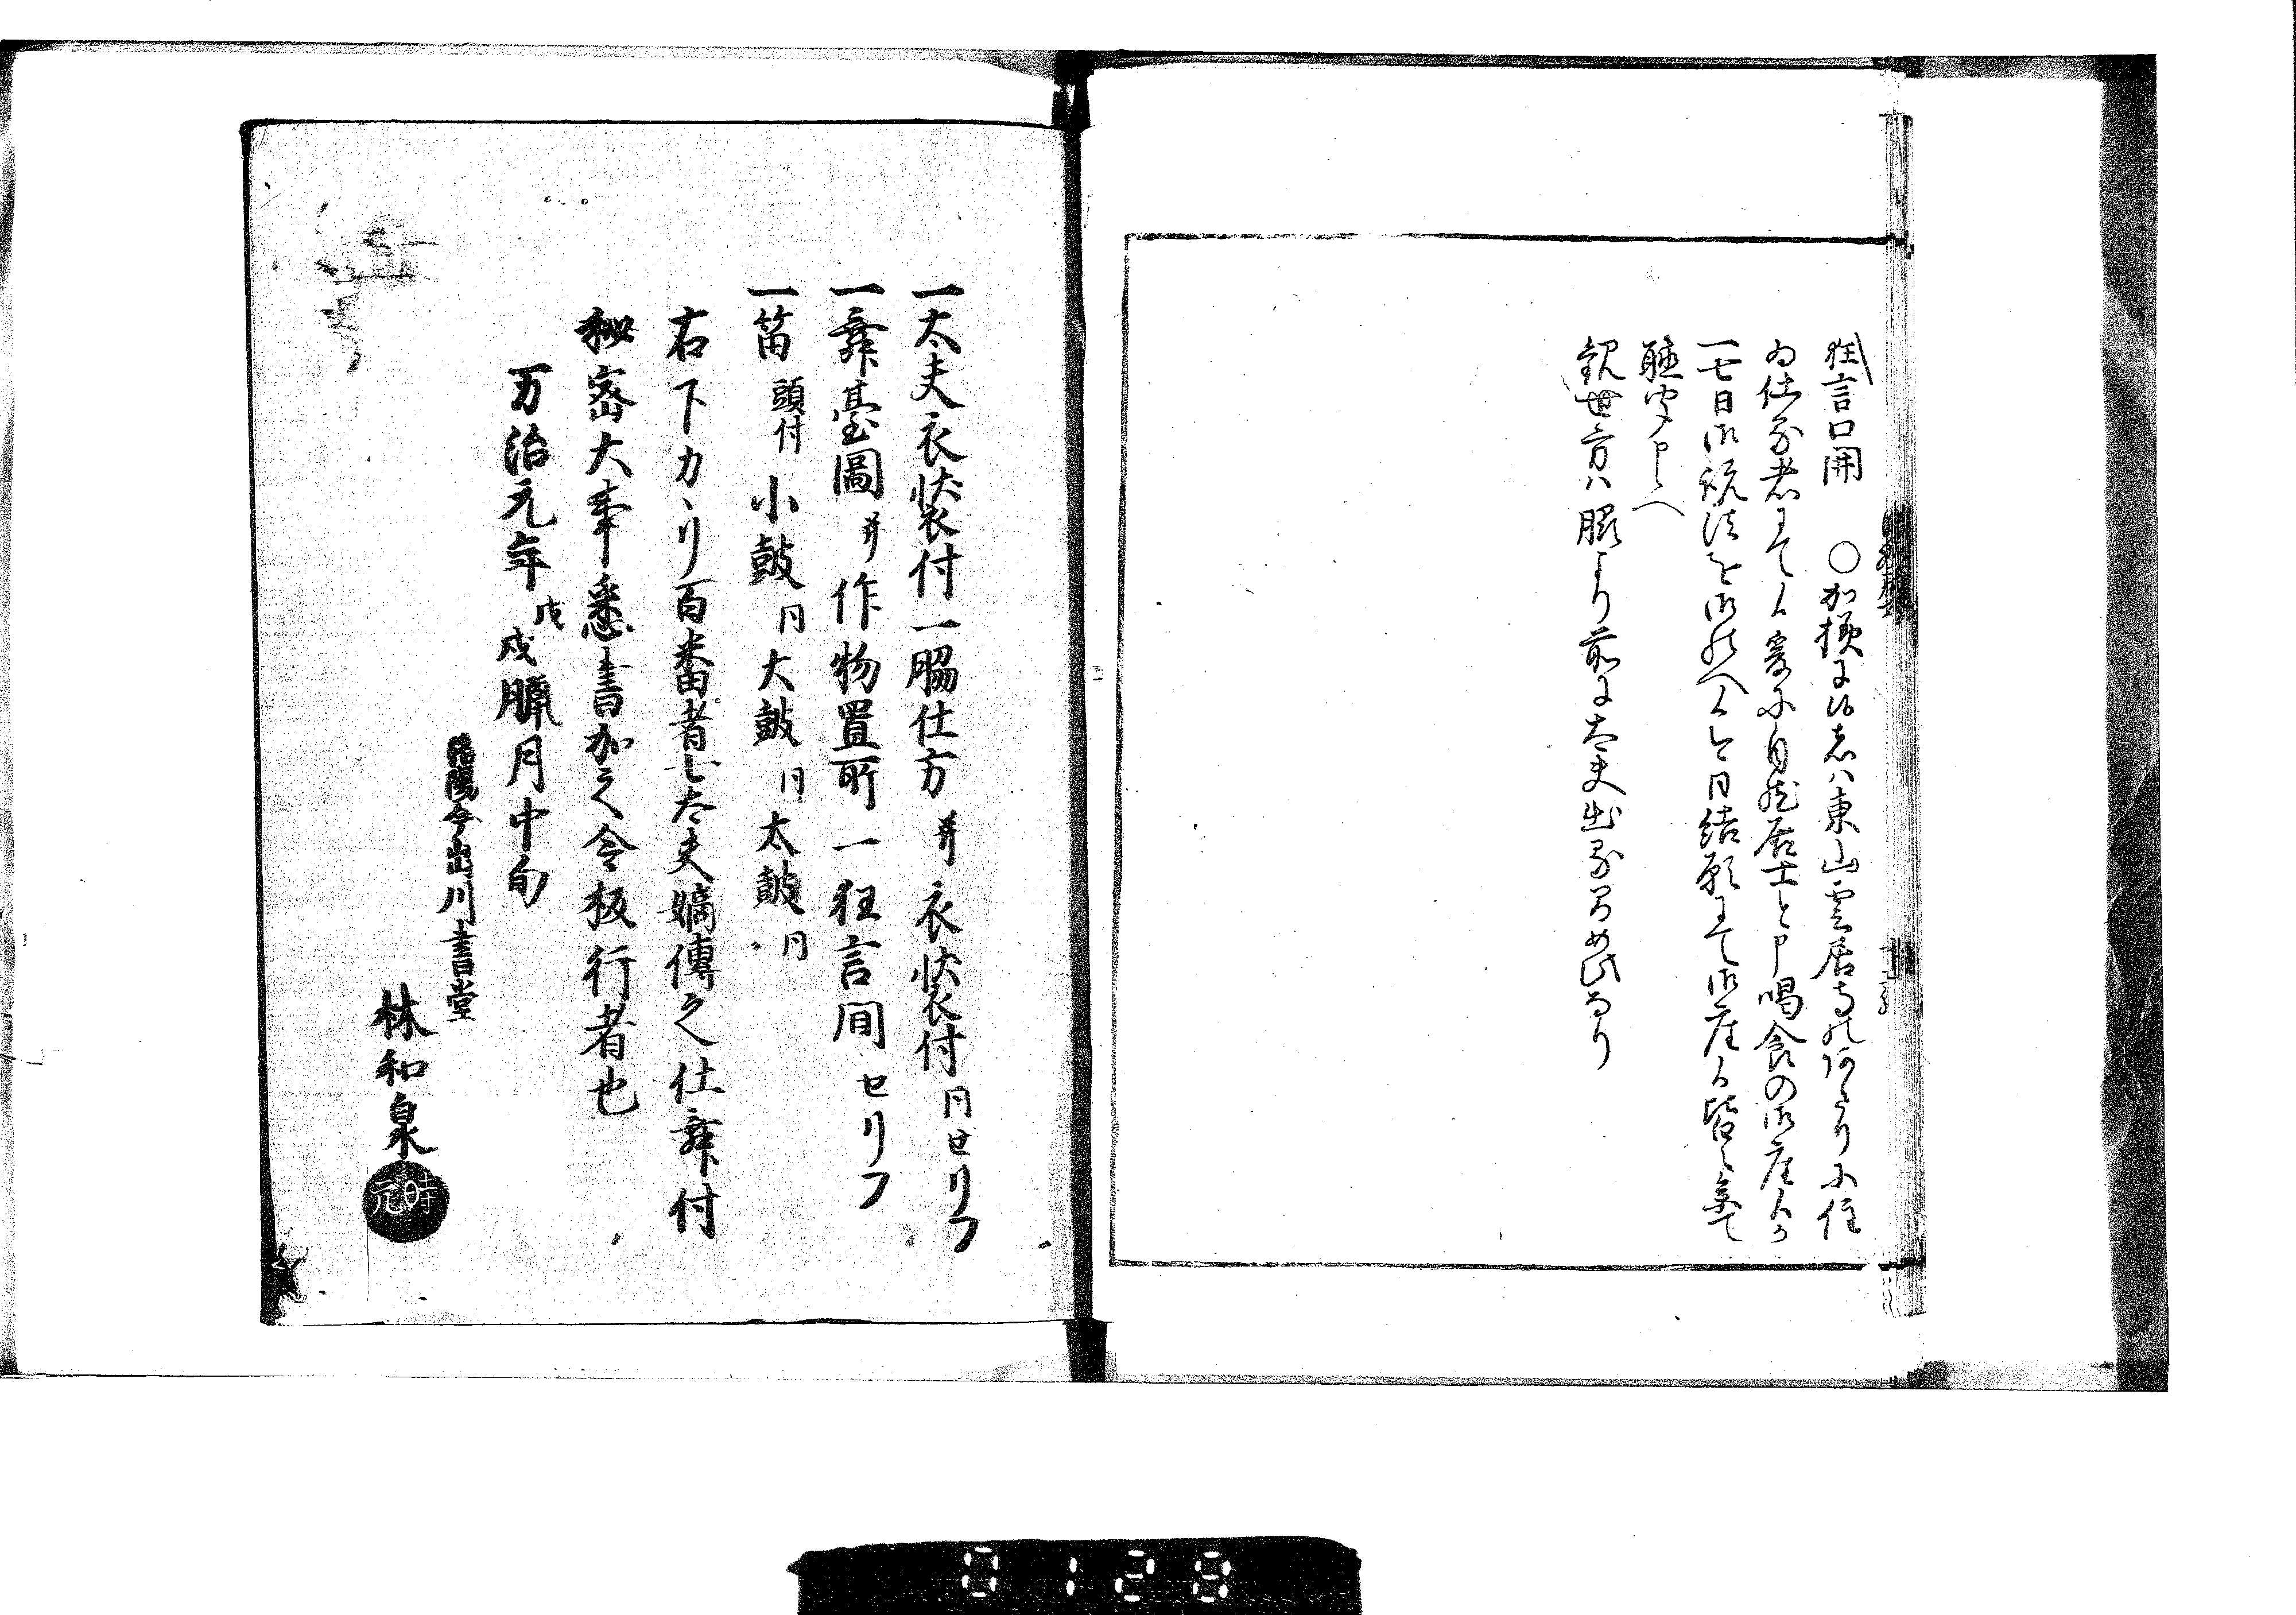 狂言口開 ○加様に候者ハ東山雲居寺のあたりに住
ゐ仕る者にて候爰に自然居士と申喝食の御座候か
一七日御説法を御のへ候今日結願にて御座候皆々参て
聴聞申さへ
観世方ハ脇より前に太夫出るゆめ此なり
一太夫衣装付一脇仕方并衣装付同セリフ
一舞臺圖并作物置所一狂言間セリフ
一笛頭付小鼓同大鼓同太鼓同
右下カヽリ百番者七太夫嫡傳之仕舞付
秘密大事悉書加之令板行者也
万治元年戊戌臘月中旬
洛陽今出川書堂
林和泉
時元
0128